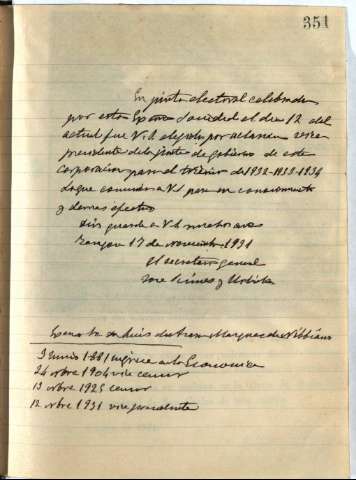 351
En junta electoral celebrada
por esta Exma Sociedad el dia 12 del
actual fue V.E. elegido por aclamacion vice
presidente de la junta de gobierno de esta
Corporacion para el trienio de 1932-1933-1934
Lo que comunico a V.E. para su conocimiento
y demas efectos
Dios guarde a V.E. muchos años
Zaragoza 17 de noviembre 1931
El secretario general
Jose Gimenez y
Exmo Sr. Dn Luis de Marques de
3 Junio 1881 ingresa a la Economica
24 obre 1904 vice censor
13 obre 1925 censor
12 obre 1931 vice presidente